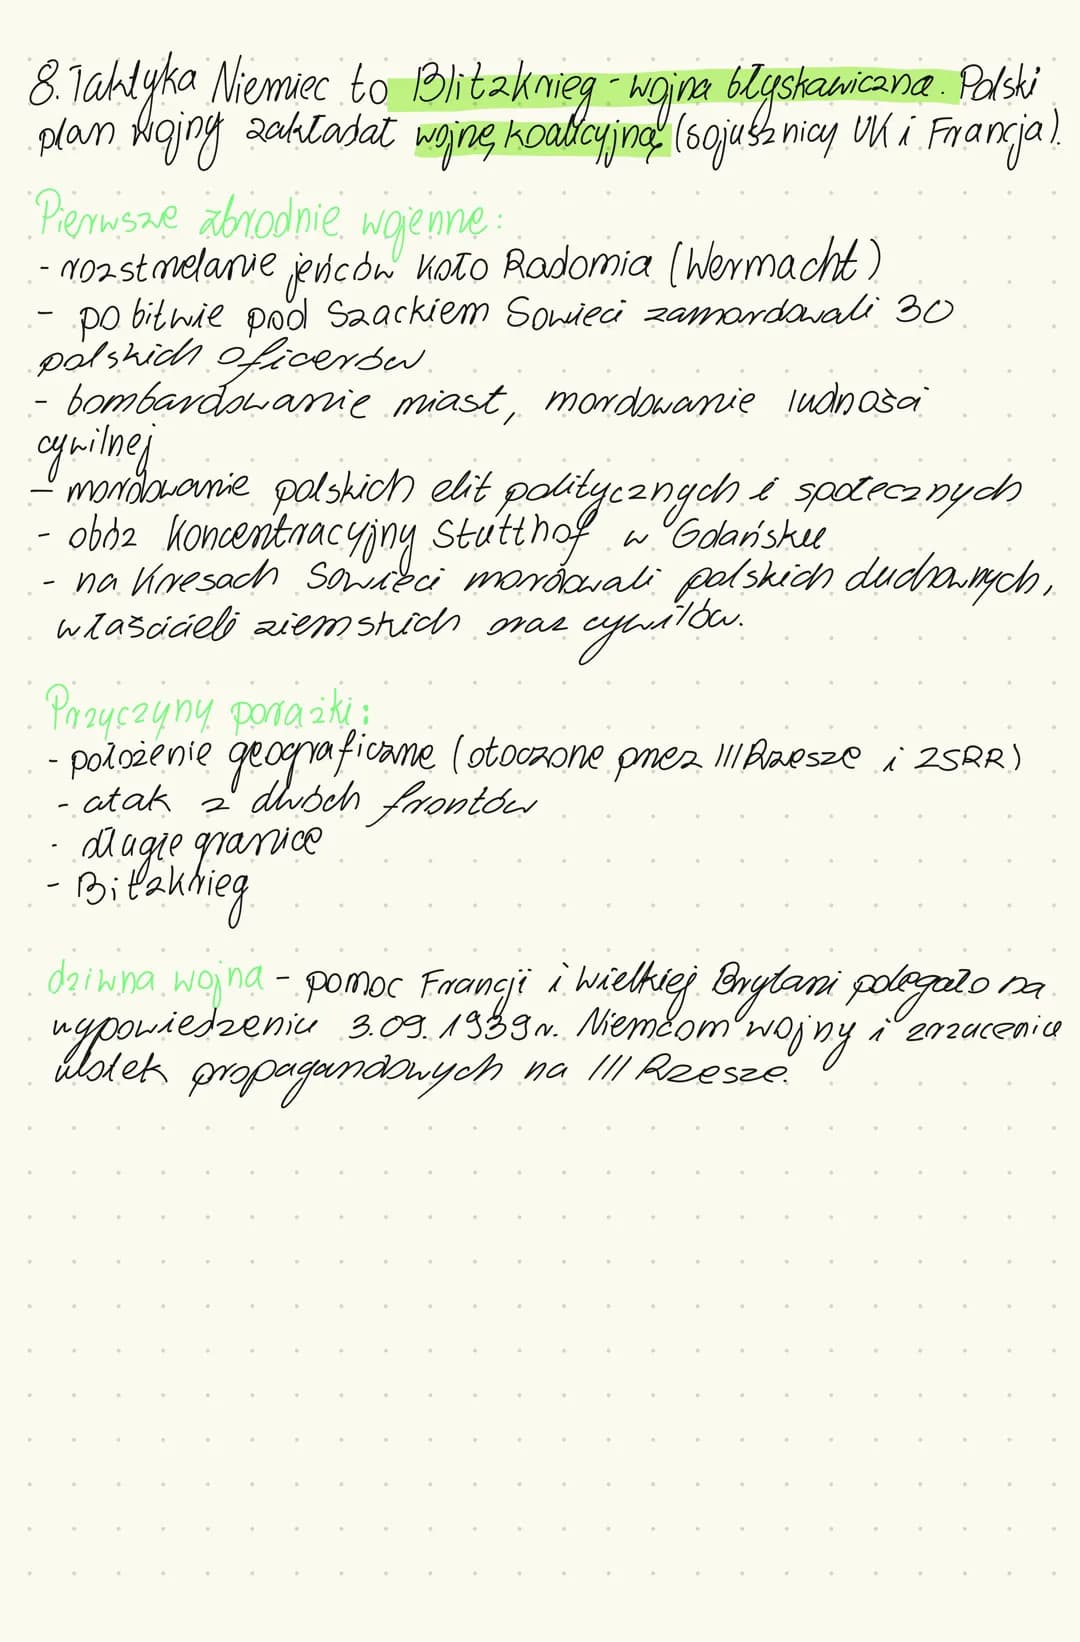 8. Taktyka Niemiec to Blitzkrieg - wojna błyskawiczna. Polski
plan wojny zakładał wojnę koalicyjną (sojusznicy UK i Francja).
Pierwsze zbrodnie wojenne:
- rozstrzelanie jeńców koło Radomia (Wermacht)
- po bitwie pod Szackiem Sowieci zamordowali 30
polskich oficerów
- bombardowanie miast, mordowanie ludności
cywilnej
- mordowanie polskich elit politycznych i społecznych
- obóz koncentracyjny Stutthof w Gdańsku
- na Kresach Sowieci mordowali polskich duchownych,
właścicieli ziemskich oraz cywilów.
Przyczyny porażki:
- położenie geograficzne (otoczone przez III Rzesze i ZSRR)
- atak z dwóch frontów
- długie granice
- Bitzkrieg
dziwna wojna - pomoc Francji i Wielkiej Brytani polegało na
wypowiedzeniu 3.09.1939r. Niemcom wojny i zrzucenice
ulotek propagandowych na III Rzesze.